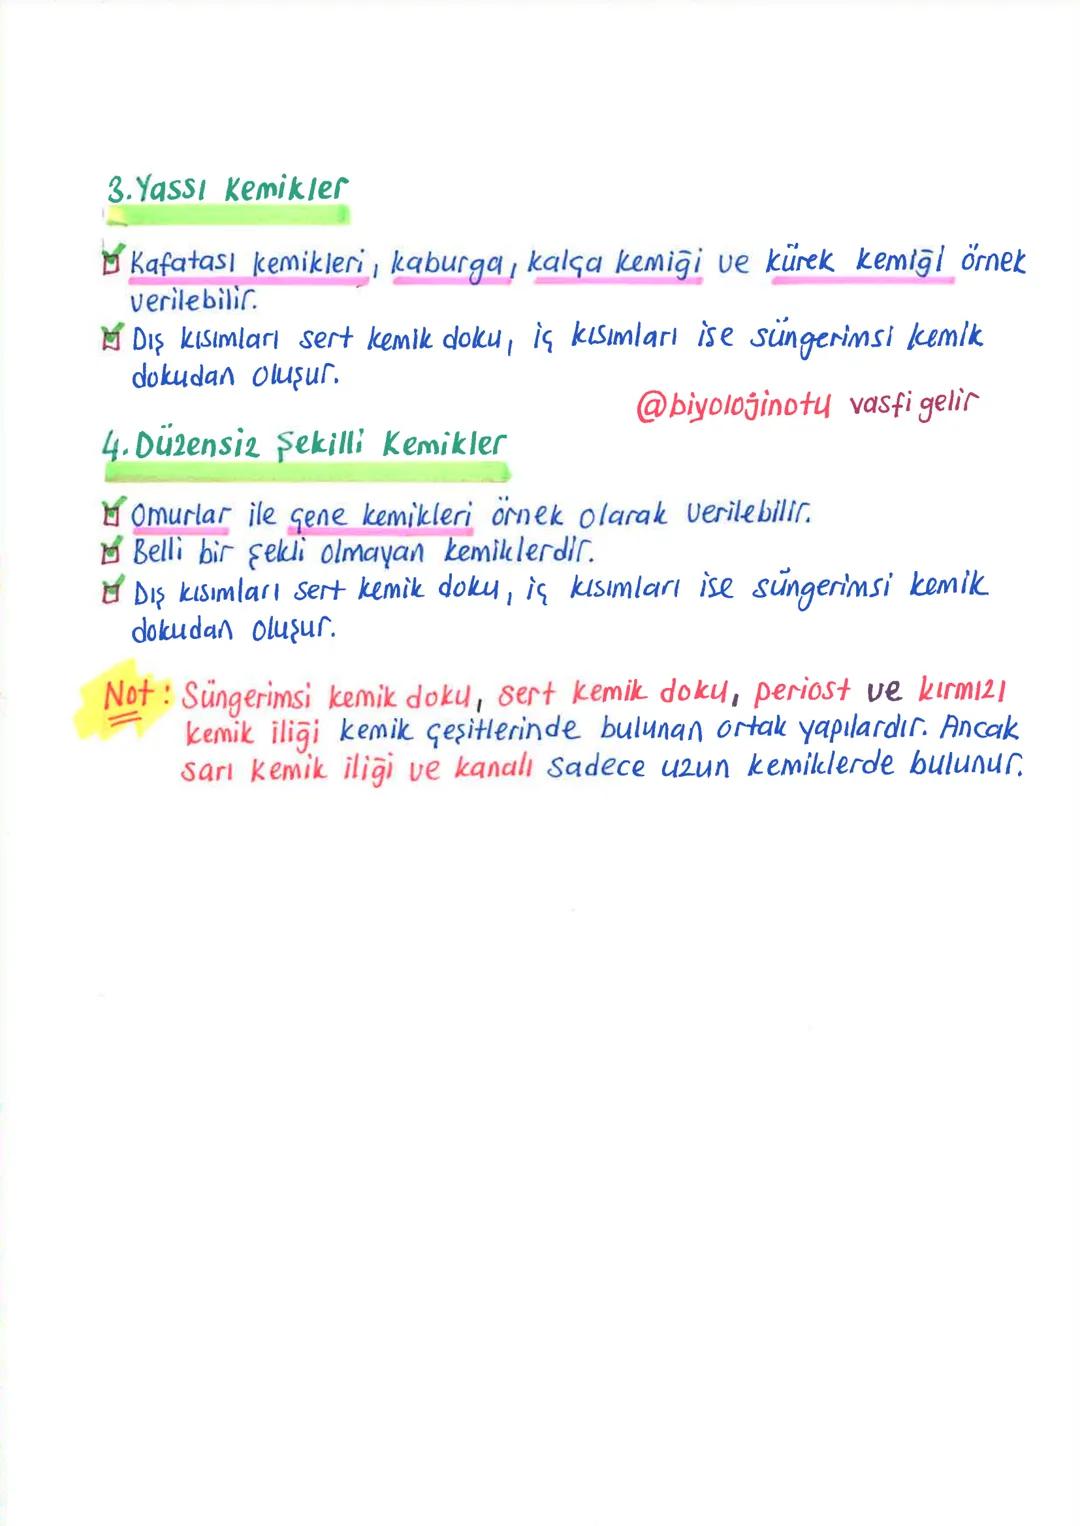 3. Yassı Kemikler
Kafatası kemikleri, kaburga, kalça kemiği ve kürek kemiği örnek
verilebilir.
Dış kısımları sert kemik doku, iç kısımları ise süngerimsi kemik
dokudan oluşur.
@biyolojinotu vasfi gelir
4. Düzensiz Şekilli Kemikler
Omurlar ile çene kemikleri örnek olarak verilebilir.
Belli bir şekli olmayan kemiklerdir.
Dış kısımları sert kemik doku, iç kısımları ise süngerimsi kemik
dokudan oluşur.
Not: Süngerimsi kemik doku, sert kemik doku, periost ve kırmızı
kemik iliği kemik çeşitlerinde bulunan ortak yapılardır. Ancak
sarı kemik iliği ve kanalı sadece uzun kemiklerde bulunur.